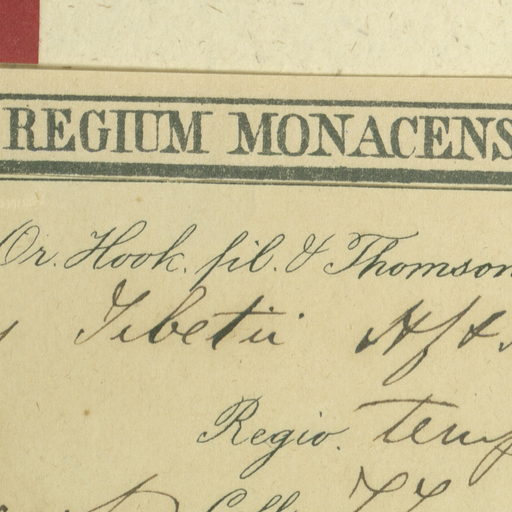 REGIUM MONACENS
Or. Hook. fil. & Thomson
Tibetii Hf &
Regio. temp
Coll. TT